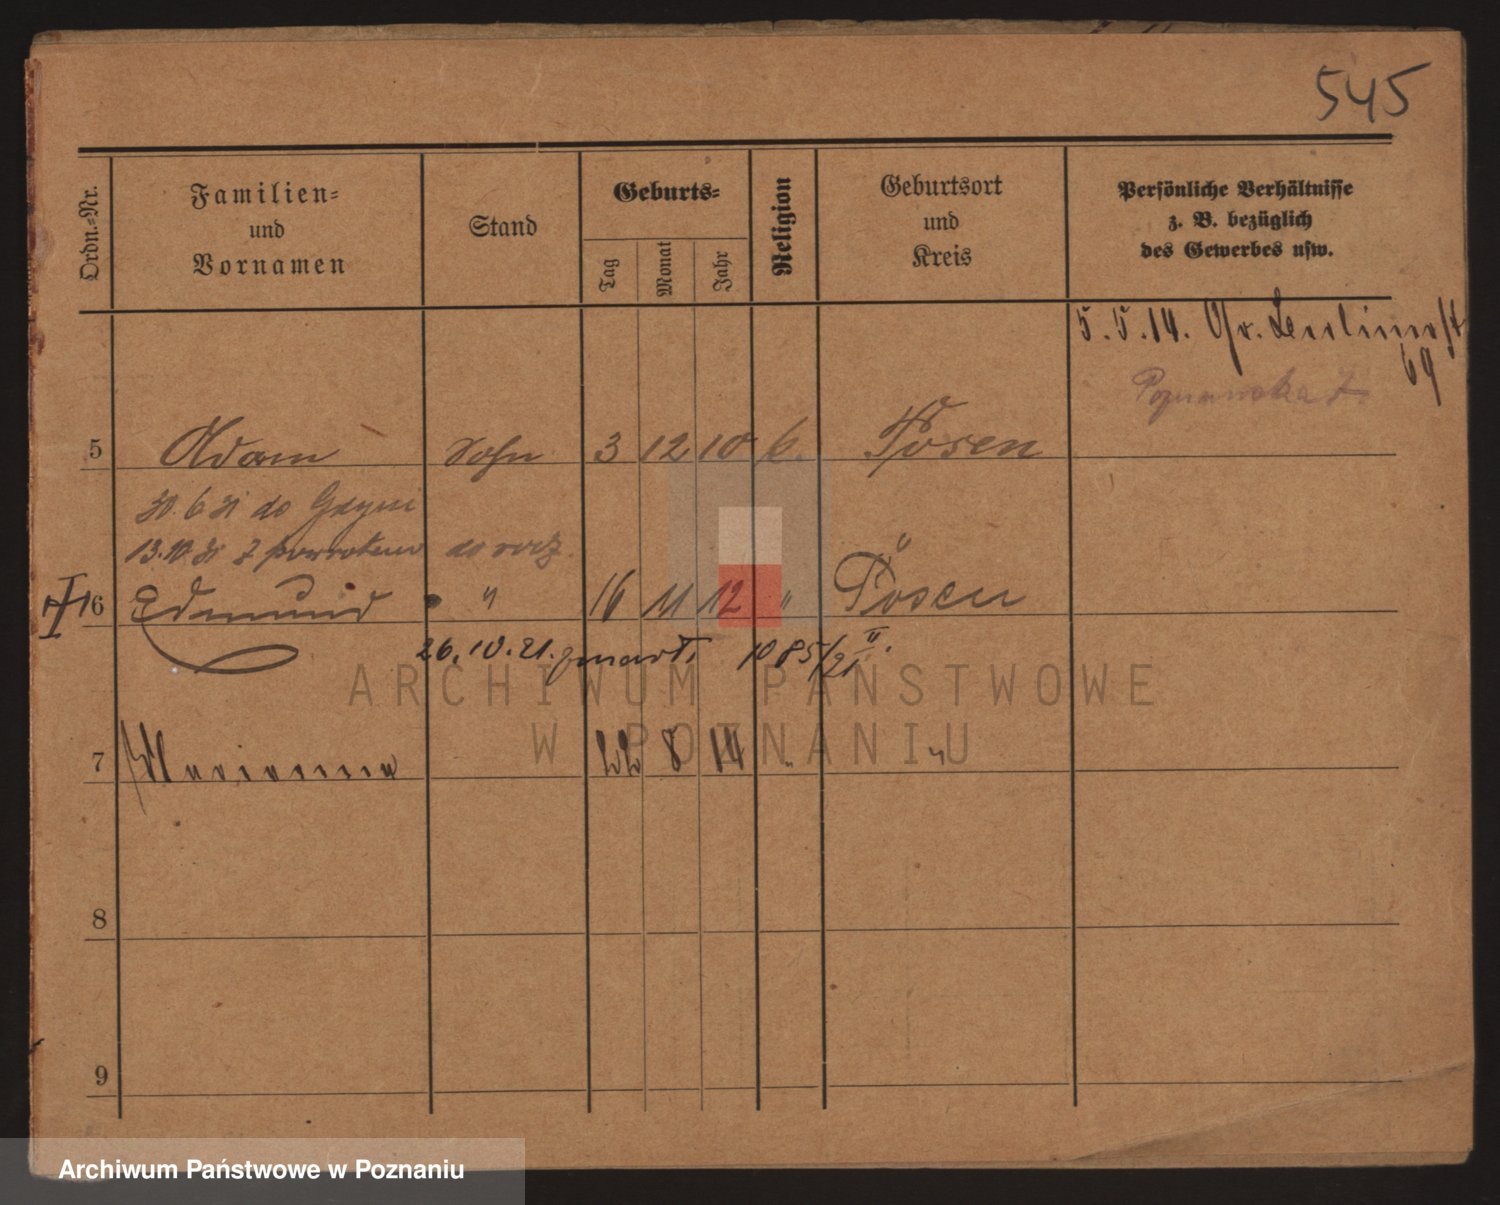 545
Ordn.-Nr.
Familien-
und
Vornamen
Stand
Geburts-
Tag
Monat
Jahr
Religion
Geburtsort
und
Kreis
Persönliche Verhältnisse
z. B. bezüglich
des Gewerbes usw.
5.5.14. Gr. Berlinerst
69
Poznańska
5 Adam Sohn 3 12 10 k. Posen
30.6.31 do Gdyni
13.10.31 z powrotem do rodz.
6 Edmund " 16 11 12 " Posen
26.10.21. zmarł 1085/21 II.
7 Marianna 22 8 14 " "
8
9
ARCHIWUM PAŃSTWOWE
W POZNANIU
Archiwum Państwowe w Poznaniu